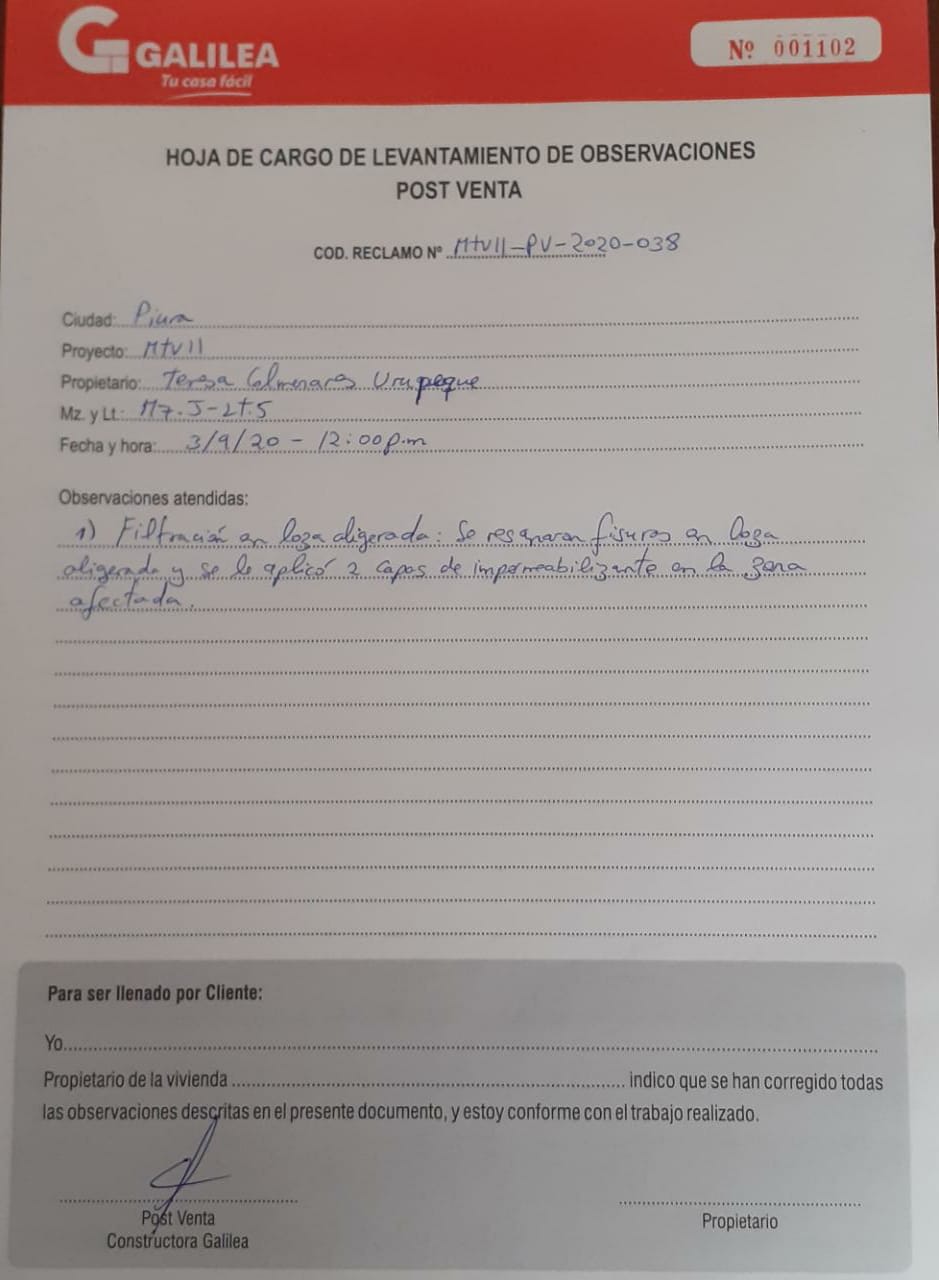 GALILEA
Tu casa fácil
Nº 001102
HOJA DE CARGO DE LEVANTAMIENTO DE OBSERVACIONES
POST VENTA
COD. RECLAMO Nº MtvII-PV-2020-038
Ciudad: Piura
Proyecto: MtvII
Propietario: Teresa Colmenares Urupeque
Mz. y Lt.: Mz. J-Lt.5
Fecha y hora: 3/9/20 - 12:00p.m
Observaciones atendidas:
1) Filtración en loza aligerada: Se resanaron fisuras en loza
aligerada y se le aplicó 2 capas de impermeabilizante en la zona
afectada.
Para ser llenado por Cliente:
Yo
Propietario de la vivienda indico que se han corregido todas
las observaciones descritas en el presente documento, y estoy conforme con el trabajo realizado.
Post Venta
Constructora Galilea
Propietario